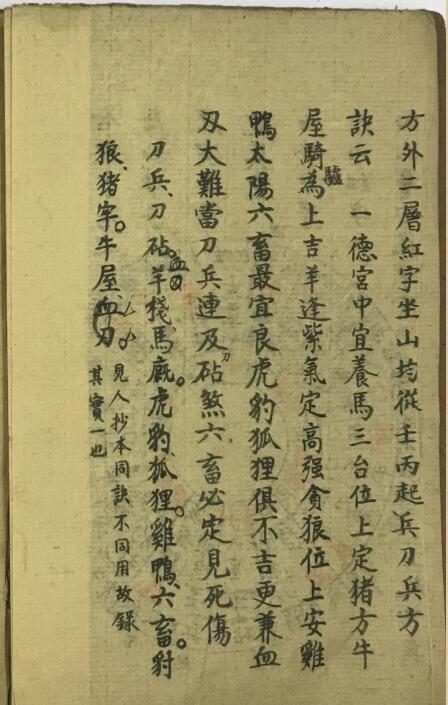 方外二層紅字坐山均從壬丙起兵刀兵方
訣云 一德宮中宜養馬三台位上定猪方牛
屋騎為驢上吉羊逢紫氣定高强貪狼位上安雞
鴨太陽六畜最宜良虎豹狐狸俱不吉更兼血
刃大難當刀兵連及砧刀煞六畜必定見死傷
刀兵、刀砧血刃羊棧、馬廐。虎豹、狐狸。雞鴨、六畜。豺
狼、猪牢。牛屋、血刀。
見人抄本同訣不同用故錄
其實一也